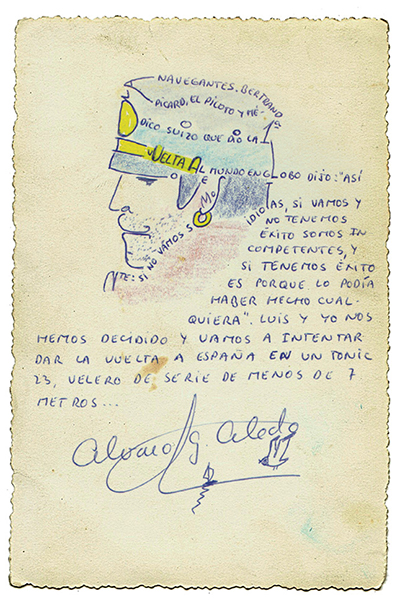 NAVEGANTES. BERTRAND
PICARD, EL PILOTO Y MÉ-
DICO SUIZO QUE DIO LA
VUELTA AL MUNDO EN GLOBO DIJO: "ASÍ
NTE: SI NO VAMOS SOMOS
IDIOTAS, SI VAMOS Y
NO TENEMOS
ÉXITO SOMOS IN
COMPETENTES, Y
SI TENEMOS ÉXITO
ES PORQUE LO PODÍA
HABER HECHO CUAL-
QUIERA". LUIS Y YO NOS
HEMOS DECIDIDO Y VAMOS A INTENTAR
DAR LA VUELTA A ESPAÑA EN UN TONIC
23, VELERO DE SERIE DE MENOS DE 7
METROS...
Alvaro G Aledo